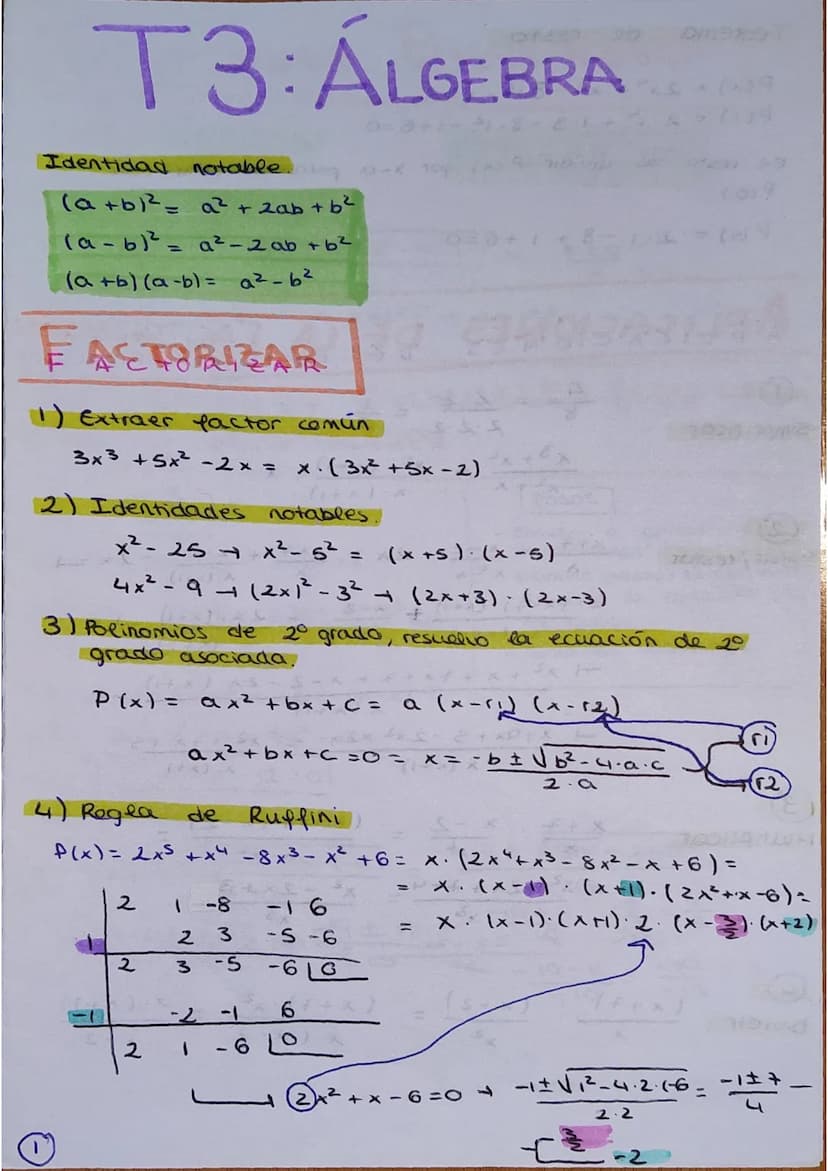 T3: ÁLGEBRA
Identidad notable.
(a+b)² = a² + 2ab + b²
(a - b)² = a² - 2ab + b²
(a+b)(a-b) = a² - b²
FACTORIZAR
1) Extraer factor común
3x³ + 5x² - 2x = x·(3x² + 5x - 2)
2) Identidades notables.
x² - 25 → x² - 5² = (x+5)·(x-5)
4x² - 9 → (2x)² - 3² → (2x+3)·(2x-3)
3) Polinomios de 2º grado, resuelvo la ecuación de 2º
grado asociada.
P(x) = ax² + bx + c = a (x-r1) (x-r2)
r1
ax² + bx + c = 0 = x = -b ± √b² - 4·a·c
2·a
r2
4) Regla de Ruffini
P(x) = 2x⁵ + x⁴ - 8x³ - x² + 6 = x·(2x⁴ + x³ - 8x² - x + 6) =
= x·(x-1)·(x+1)·(2x²+x-6) =
= x·(x-1)·(x+1)·2·(x-3/2)·(x+2)
2 1 -8 -1 6
1 2 3 -5 -6
2 3 -5 -6 0
-1 -2 -1 6
2 1 -6 0
2x² + x - 6 = 0 → -1 ± √1² - 4·2·(-6 = -1 ± 7
2·2 4
3/2
-2
1